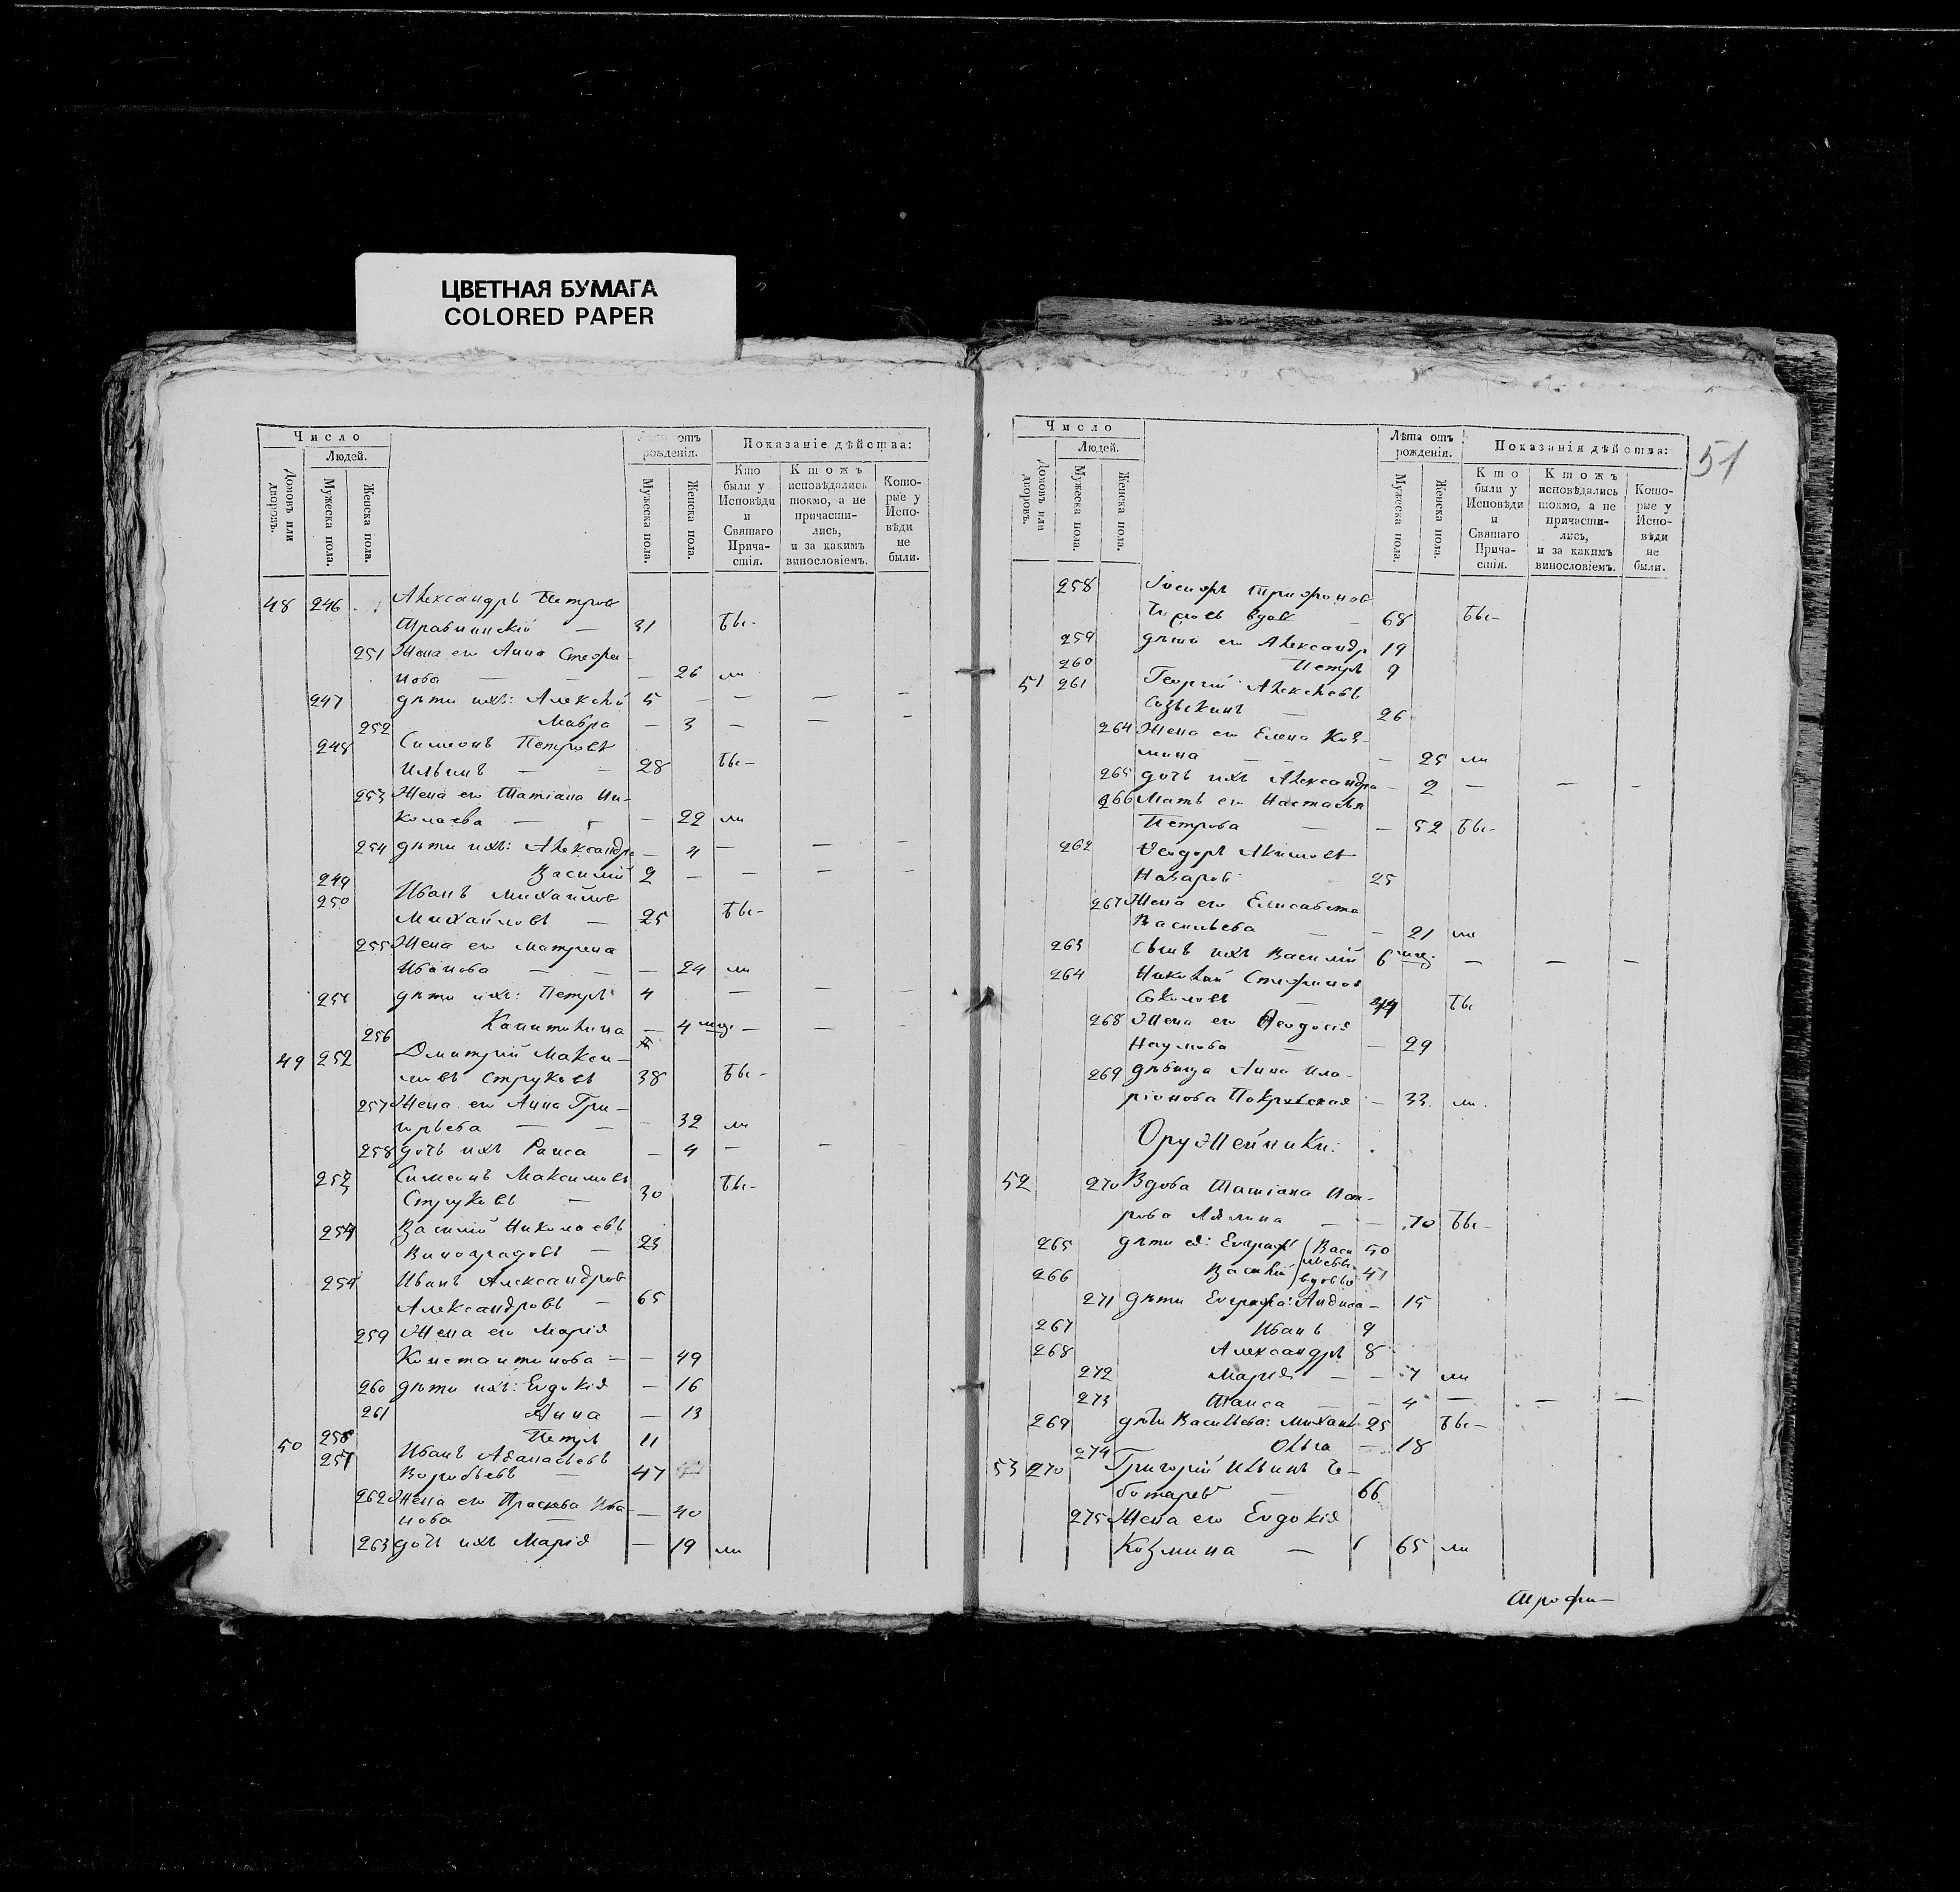 ЦВЕТНАЯ БУМАГА
COLORED PAPER
Число
Людей.
Домовъ или дворовъ.
Мужеска пола.
Женска пола.
Лѣта отъ рожденія.
Мужеска пола.
Женска пола.
Показаніе дѣйства:
Кто были у Исповѣди и Святаго Прича- стія.
Ктожъ исповѣдались токмо, а не причасти- лись, и за какимъ винословіемъ.
Кото- рые у Испо- вѣди не были.
48 246 Александръ Петровъ
31 бы-
251 Жена его Анна Стефа-
нова — — — 26 ли
247 дѣти ихъ: Алексѣй 5 — — — —
252 Мавра — 3 — — —
248 Симеонъ Петровъ
Ильинъ — — 28 бы-
253 Жена его Татіана Ни-
колаева — — — 22 ли
254 дѣти ихъ: Александра — 4 — — —
249 Василій 2 — — — —
250 Иванъ Михайловъ
Михайловъ — 25 бы-
255 Жена его Матрена
Иванова — — — 24 ли
251 дѣти ихъ: Петръ 4 — — —
256 Капитолина — 4 мец. — — —
49 252 Дмитрій Макси-
мовъ Струковъ 38 бы-
257 Жена его Анна Гри-
горьева — — — 32 ли
258 дочь ихъ Раиса — 4 — — —
253 Симеонъ Максимовъ
Струковъ — 30 бы-
254 Василій Николаевъ
Виноградовъ — 23
Иванъ Александровъ
Александровъ — 65
259 Жена его Марія
Константинова — — 49
260 дѣти ихъ: Евдокія — 16
261 Анна — 13
Петръ 11
50 257 Иванъ Аѳанасьевъ
Воробьевъ — 47
262 Жена его Прасковья Ива-
нова — — 40
263 дочь ихъ Марія — 19 ли
51
Число
Людей.
Домовъ или дворовъ.
Мужеска пола.
Женска пола.
Лѣта отъ рожденія.
Мужеска пола.
Женска пола.
Показанія дѣйства:
Кто были у Исповѣди и Святаго Прича- стія.
Ктожъ исповѣдались токмо, а не причасти- лись, и за какимъ винословіемъ.
Кото- рые у Испо- вѣди не были.
258 Трифоновъ
вдовъ — 68 бы-
259 дѣти его Александръ 19
260 Петръ 9
51 261 Георгій Алексѣевъ
— 26
264 Жена его Елена Коз-
мина — — — 25 ли
265 дочь ихъ Александра — 2 — — —
266 Мать его Настасья
Петрова — — 52 бы-
262 Ѳеодоръ Акимовъ
25
267 Жена его Елисавета
Васильева — — 21 ли
263 сынъ ихъ Василій 6 мец. — — —
264 Николай Стефановъ
Соколовъ — 44 бы
268 Жена его Ѳеодосія
Наумова — — 29
269 дѣвица Анна Ила-
ріонова Покровская — 33 ли
Оружейники:
52 270 Вдова Татіана Пет-
рова — — 70 бы-
265 дѣти ея: Евграфъ 50
266 Василій 47
Васи
льевы
вдовы
271 дѣти Евграфа: — 15
267 Иванъ 9
268 Александръ 8
272 Марія — — 7 ли
273 Таиса — — 4 — — —
269 дѣти Васильева: Михаилъ 25 бы-
274 Ольга — 18
53 270 Григорій Ильинъ Че-
ботаревъ — 66
275 Жена его Евдокія
Козмина — 65 ли
Трофи-